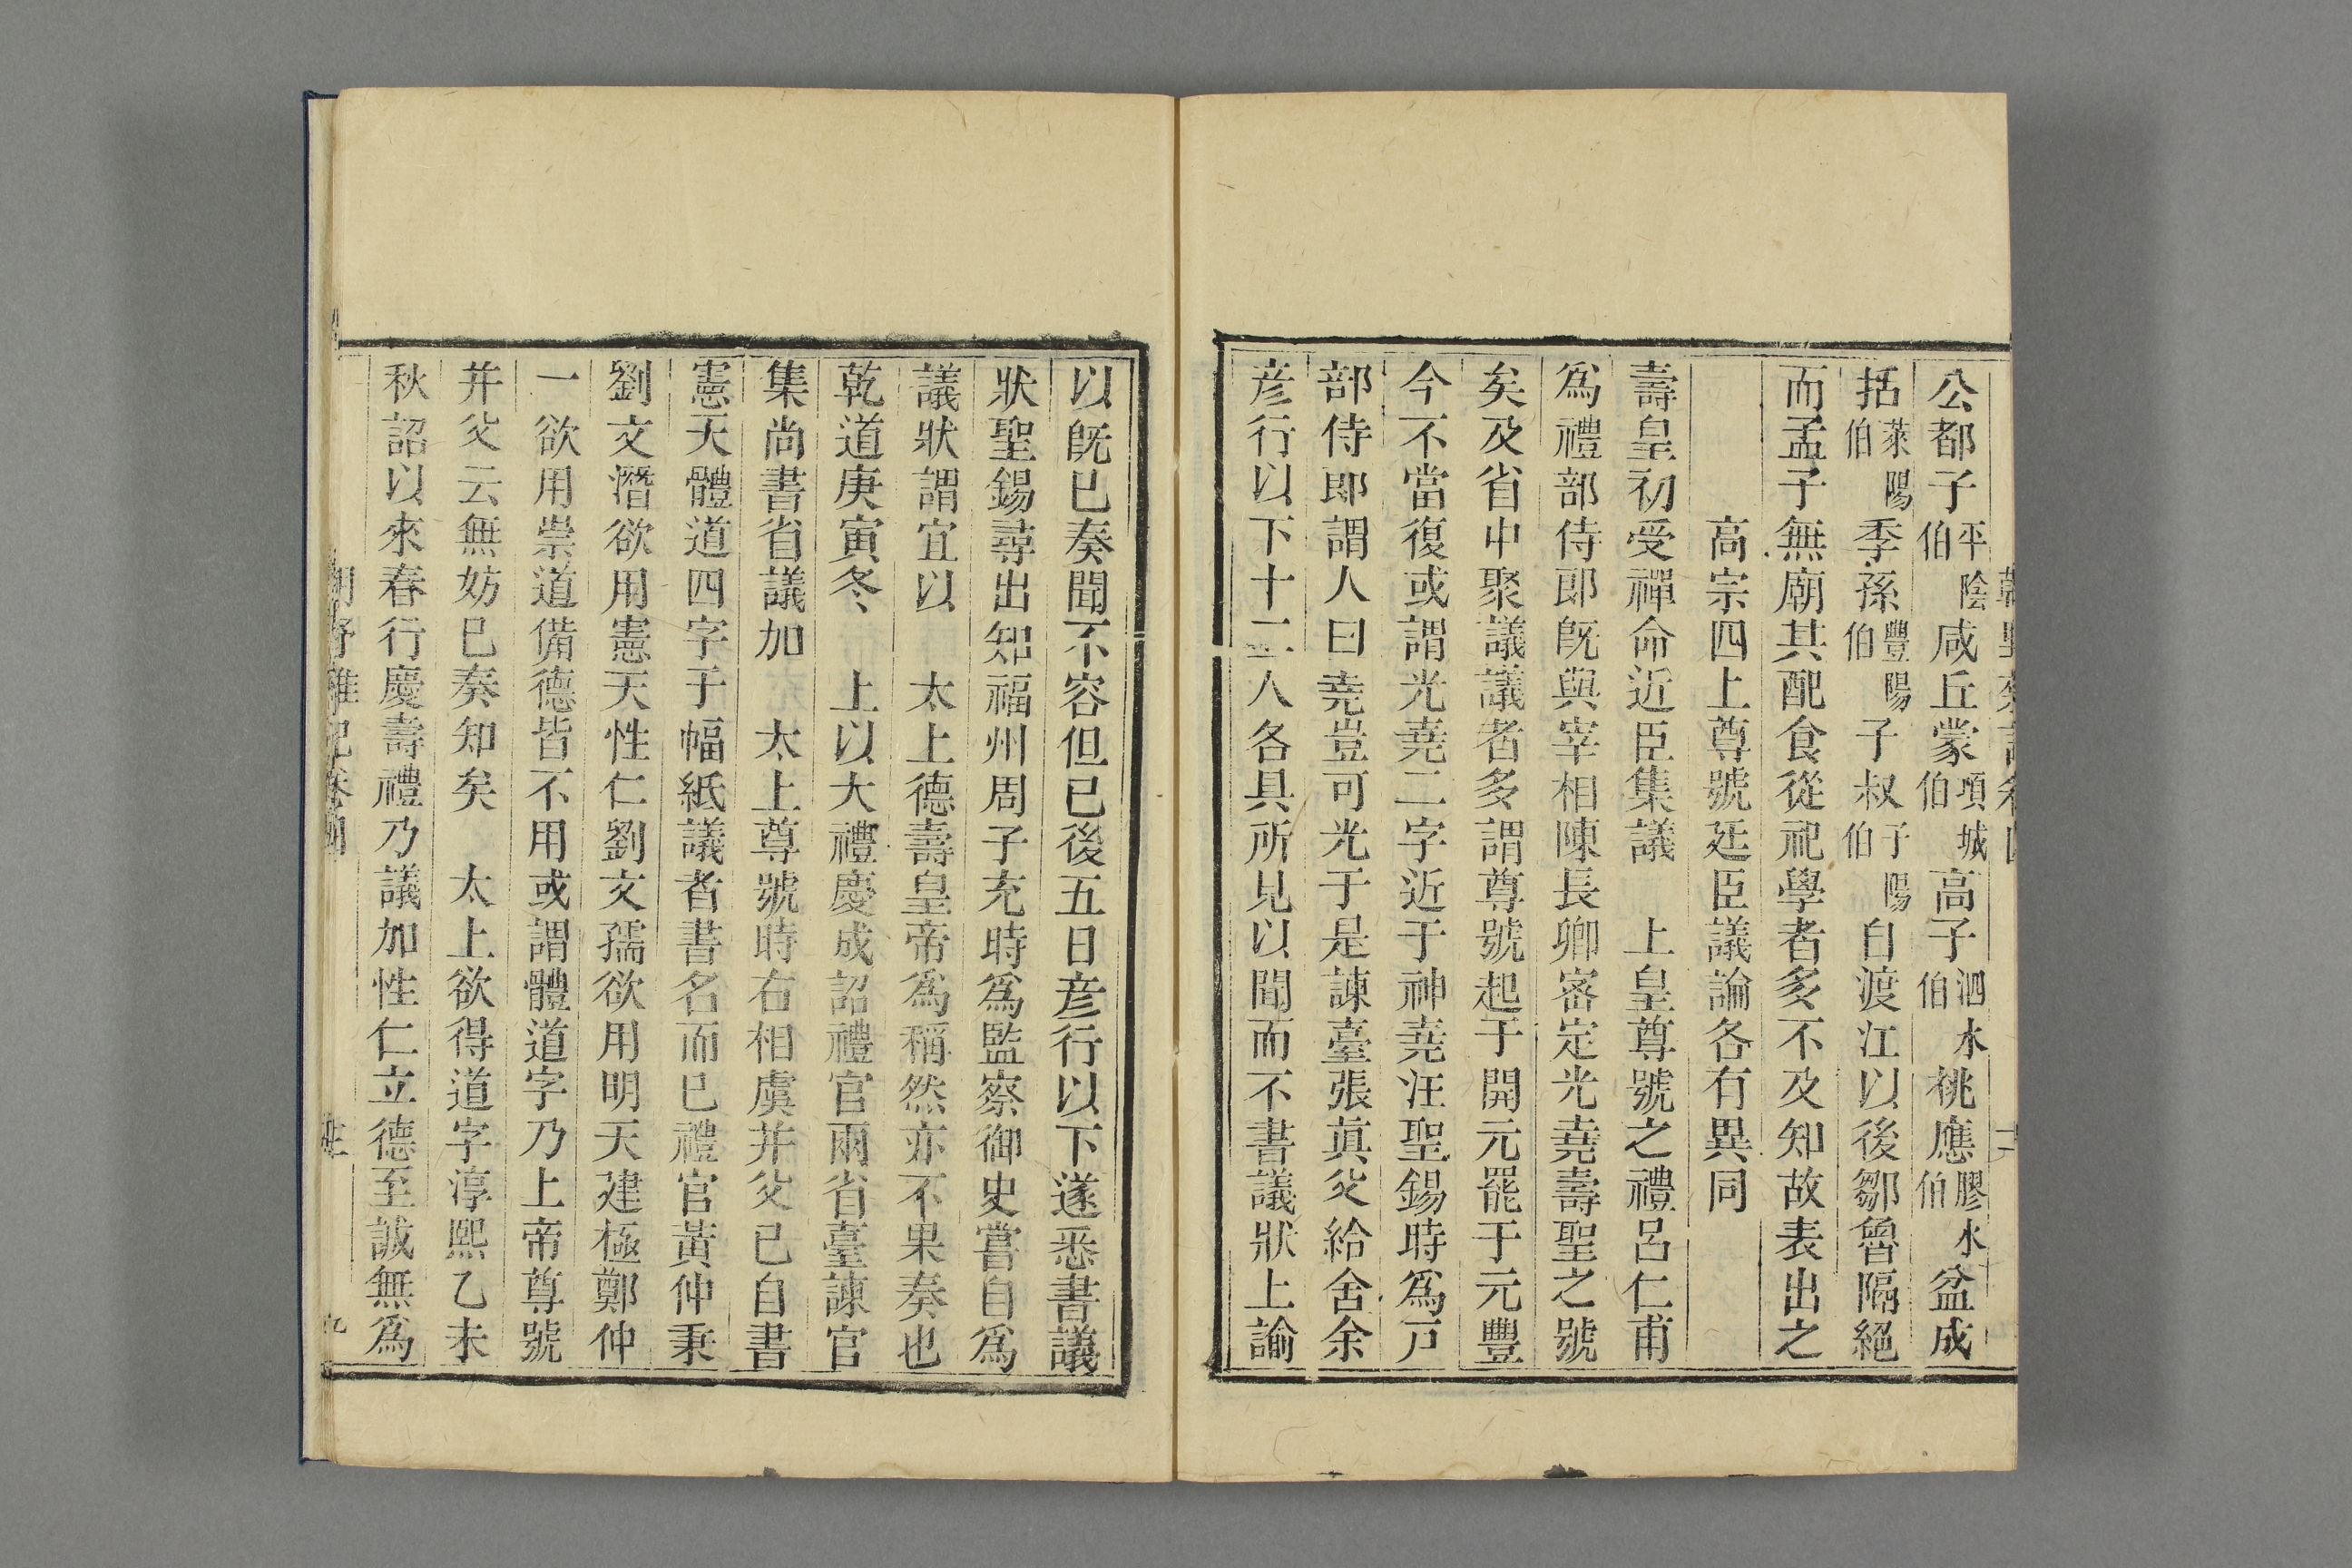 公都子平陰伯咸丘蒙項城伯高子泗水伯桃應膠水伯盆成
括萊陽伯季孫豐陽伯子叔子陽伯白渡江以後鄒魯隔絕
而孟子無廟其配食從祀學者多不及知故表出之
高宗四上尊號廷臣議論各有異同
壽皇初受禪命近臣集議　上皇尊號之禮呂仁甫
爲禮部侍郎旣與宰相陳長卿密定光堯壽聖之號
矣及省中聚議議者多謂尊號起于開元罷于元豐
今不當復或謂光堯二字近于神堯汪聖錫時爲戸
部侍郎謂人曰堯豈可光于是諫臺張眞父給舍余
彦行以下十二人各具所見以聞而不書議狀上諭
以旣已奏聞不容但已後五日彦行以下遂悉書議
狀聖錫尋出知福州周子充時爲監察御史嘗自爲
議狀謂宜以　太上德壽皇帝爲稱然亦不果奏也
乾道庚寅冬　上以大禮慶成詔禮官兩省臺諫官
集尚書省議加　太上尊號時右相虞并父已自書
憲天體道四字于幅紙議者書名而已禮官黃仲秉
劉文潛欲用憲天性仁劉文孺欲用明天建極鄭仲
一欲用崇道備德皆不用或謂體道字乃上帝尊號
并父云無妨已奏知矣　太上欲得道字淳熙乙未
秋詔以來春行慶壽禮乃議加性仁立德至誠無爲
朝野雜記卷四